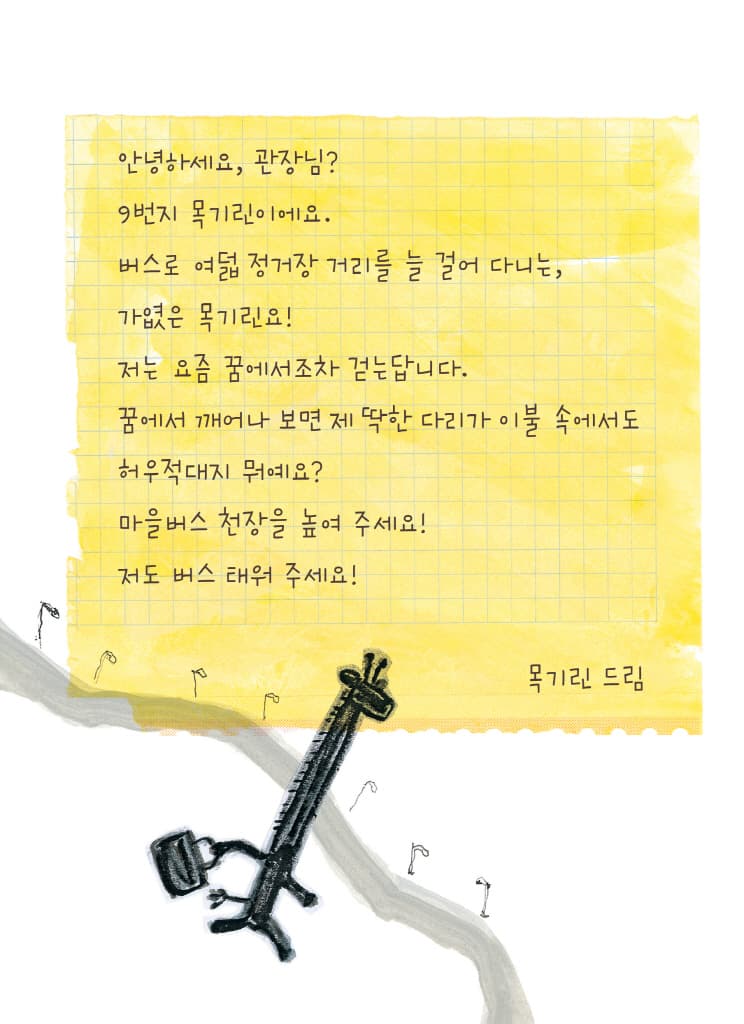 안녕하세요, 관장님?
9번지 목기린이에요.
버스로 여덟 정거장 거리를 늘 걸어 다니는,
가엾은 목기린요!
저는 요즘 꿈에서조차 걷는답니다.
꿈에서 깨어나 보면 제 딱한 다리가 이불 속에서도
허우적대지 뭐예요?
마을버스 천장을 높여 주세요!
저도 버스 태워 주세요!
목기린 드림